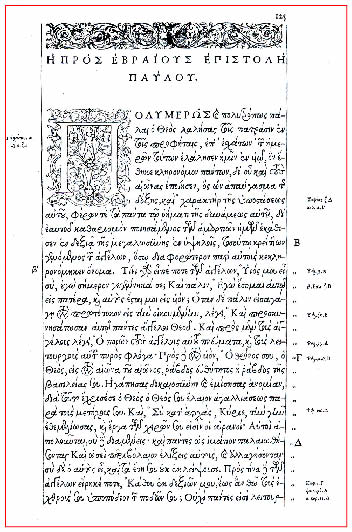 125
Η ΠΡΟΣ ΕΒΡΑΙΟΥΣ ΕΠΙΣΤΟΛΗ
ΠΑΥΛΟΥ.
ΠΟΛΥΜΕΡΩΣ καὶ πολυτρόπως πά-
λαι ὁ Θεὸς λαλήσας τοῖς πατράσιν ἐν
τοῖς προφήταις, ἐπ' ἐσχάτων τῶν ἡμε-
ρῶν τούτων ἐλάλησεν ἡμῖν ἐν υἱῷ, ὃν ἔ-
θηκε κληρονόμον πάντων, δι' οὗ καὶ τοὺς
αἰῶνας ἐποίησεν, ὃς ὢν ἀπαύγασμα τῆς
δόξης, καὶ χαρακτὴρ τῆς ὑποστάσεως
αὐτοῦ, φέρων τε τὰ πάντα τῷ ῥήματι τῆς δυνάμεως αὐτοῦ, δι'
ἑαυτοῦ καθαρισμὸν ποιησάμενος τῶν ἁμαρτιῶν ἡμῶν, ἐκάθι-
σεν ἐν δεξιᾷ τῆς μεγαλωσύνης ἐν ὑψηλοῖς, τοσούτῳ κρείττων
Β
γενόμενος τῶν ἀγγέλων, ὅσῳ διαφορώτερον παρ' αὐτοὺς κεκλη-
ρονόμηκεν ὄνομα. Τίνι γὰρ εἶπέ ποτε τῶν ἀγγέλων, Υἱός μου εἶ
σὺ, ἐγὼ σήμερον γεγέννηκά σε; Καὶ πάλιν, Ἐγὼ ἔσομαι αὐτῷ
εἰς πατέρα, καὶ αὐτὸς ἔσται μοι εἰς υἱόν; Ὅταν δὲ πάλιν εἰσαγά-
γῃ τὸν πρωτότοκον εἰς τὴν οἰκουμένην, λέγει, Καὶ προσκυ-
νησάτωσαν αὐτῷ πάντες ἄγγελοι Θεοῦ. Καὶ πρὸς μὲν τοὺς ἀγ-
γέλους λέγει, Ὁ ποιῶν τοὺς ἀγγέλους αὐτοῦ πνεύματα, καὶ τοὺς λει-
τουργοὺς αὐτοῦ πυρὸς φλόγα· Πρὸς δὲ τὸν υἱόν, Ὁ θρόνος σου, ὁ
Γ
Θεὸς, εἰς τὸν αἰῶνα τοῦ αἰῶνος, ῥάβδος εὐθύτητος ἡ ῥάβδος τῆς
βασιλείας σου. Ἠγάπησας δικαιοσύνην καὶ ἐμίσησας ἀνομίαν,
διὰ τοῦτο ἔχρισέ σε ὁ Θεὸς ὁ Θεός σου ἔλαιον ἀγαλλιάσεως πα-
ρὰ τοὺς μετόχους σου. Καί, Σὺ κατ' ἀρχὰς, Κύριε, τὴν γῆν
ἐθεμελίωσας, καὶ ἔργα τῶν χειρῶν σου εἰσιν οἱ οὐρανοί· Αὐτοὶ ἀ-
πολοῦνται, σὺ δὲ διαμένεις· καὶ πάντες ὡς ἱμάτιον παλαιωθή-
Δ
σονται, Καὶ ὡσεὶ περιβόλαιον ἑλίξεις αὐτοὺς, καὶ ἀλλαγήσονται·
σὺ δὲ ὁ αὐτὸς εἶ, καὶ τὰ ἔτη σου οὐκ ἐκλείψουσι. Πρὸς τίνα δὲ τῶν
ἀγγέλων εἴρηκέ ποτε, Κάθου ἐκ δεξιῶν μου, ἕως ἂν θῶ τοὺς ἐ-
χθρούς σου ὑποπόδιον τῶν ποδῶν σου; Οὐχὶ πάντες εἰσὶ λειτουρ-